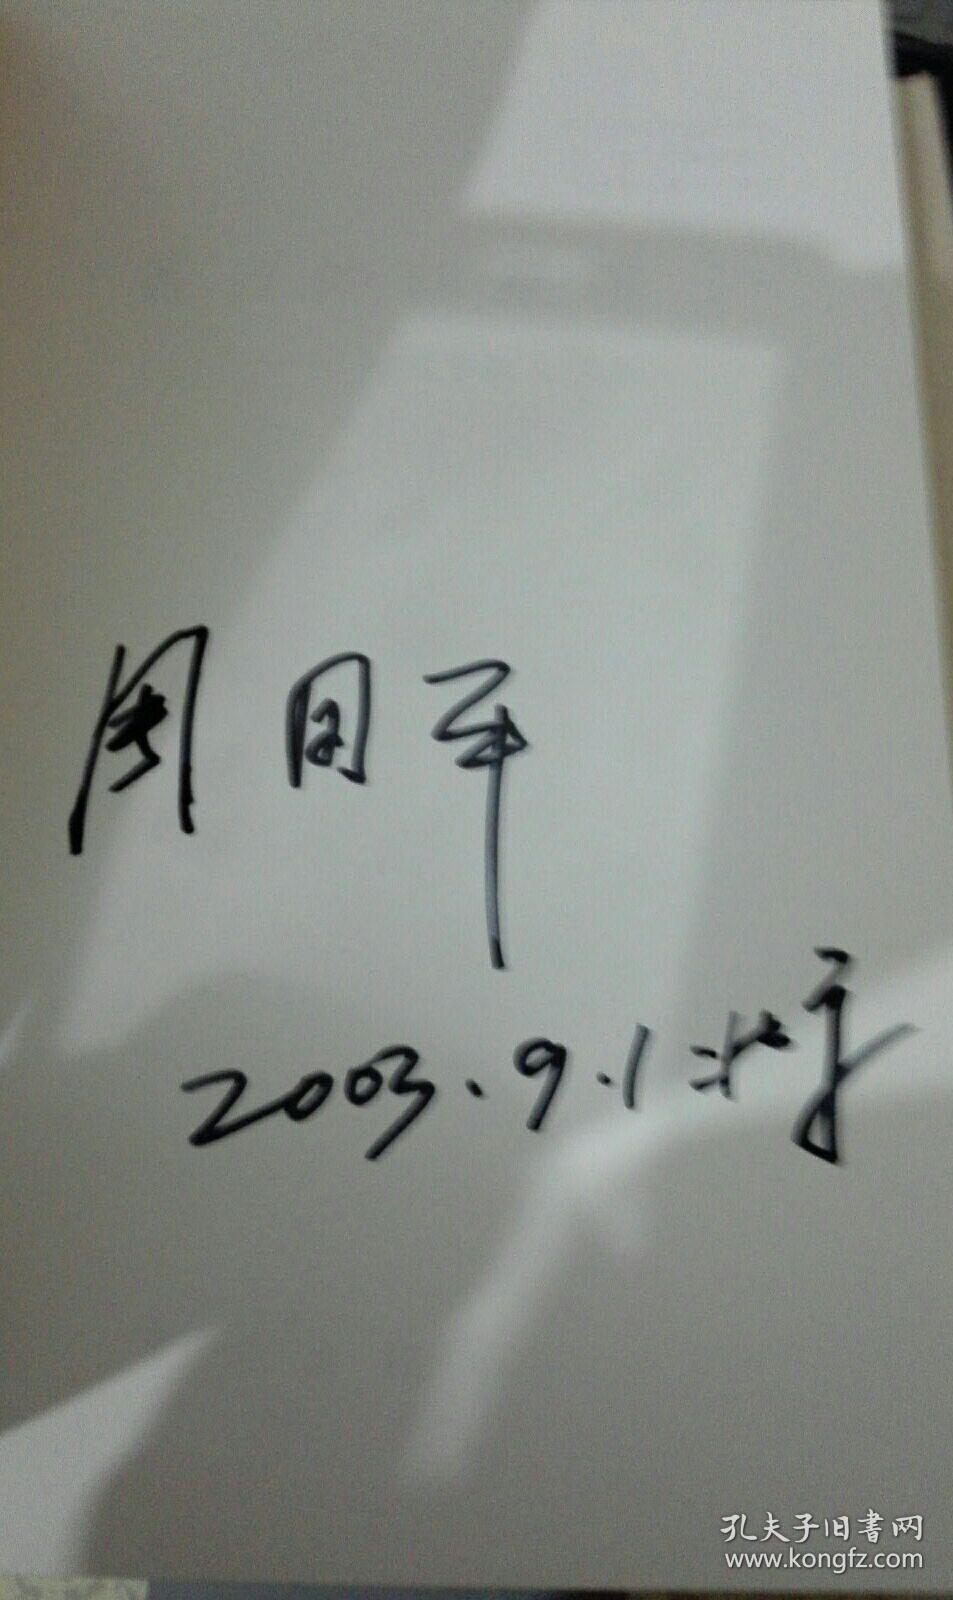 周国平
2003.9.1 北京
孔夫子旧書网
www.kongfz.com